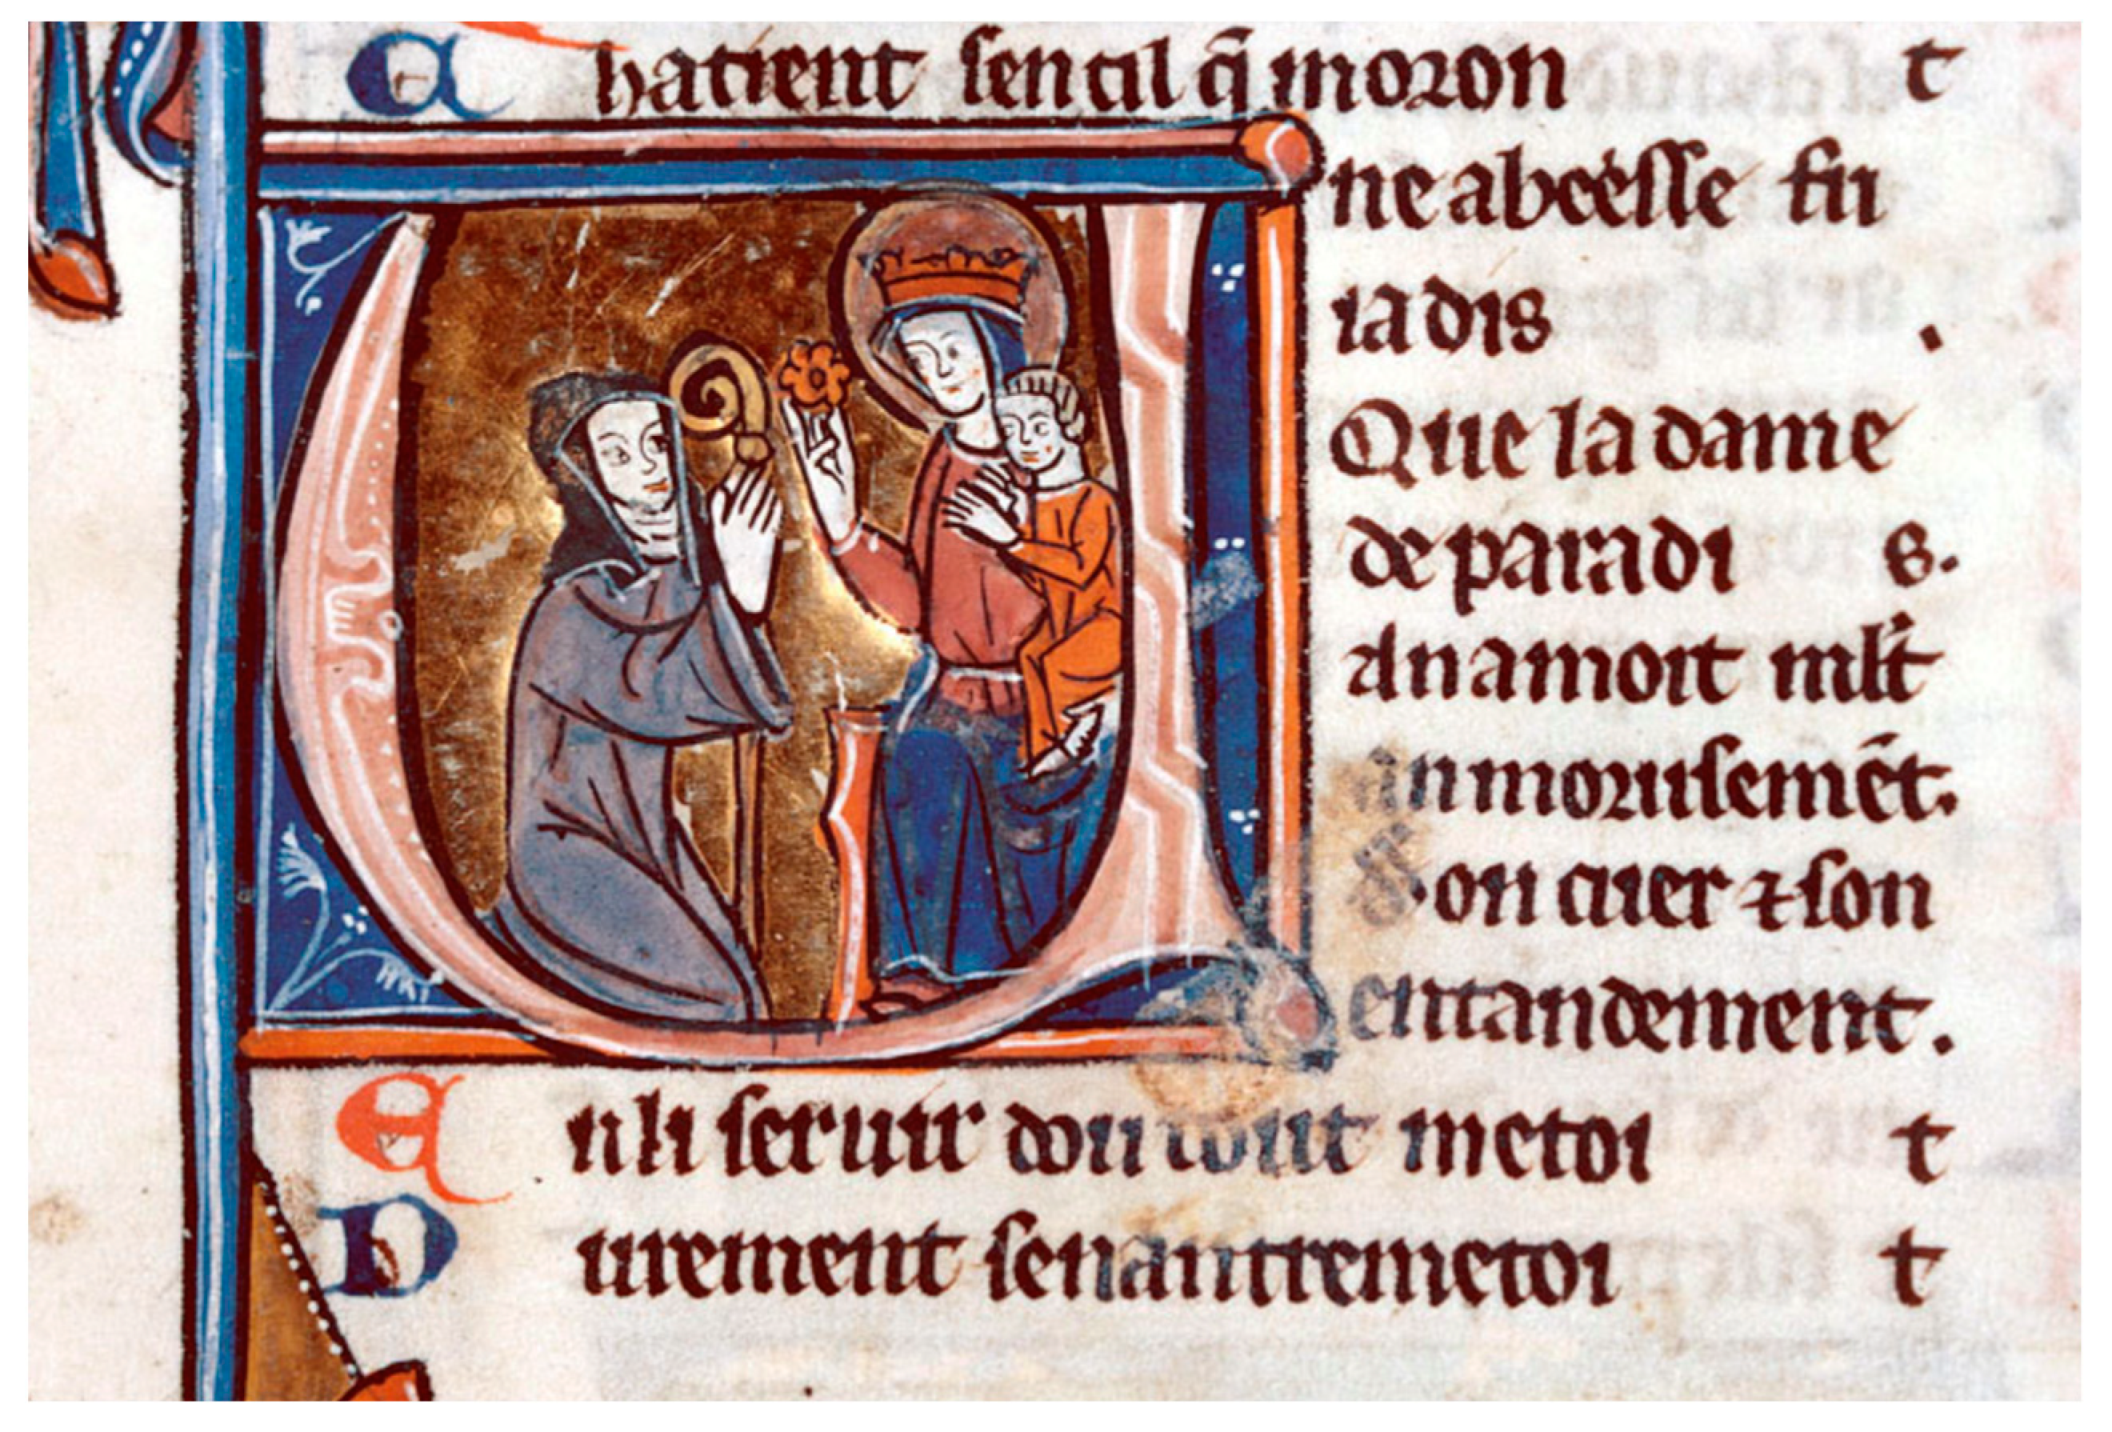 A hatient sen cil q̄ moron t
U ne abeesse fu
iadis .
Que la dame
de paradi s.
An amoit ml't
an morusemēt.
Son cuer ⁊ son
entandement.
E n li seruir don tout metoi t
D urement sen antremetoi t